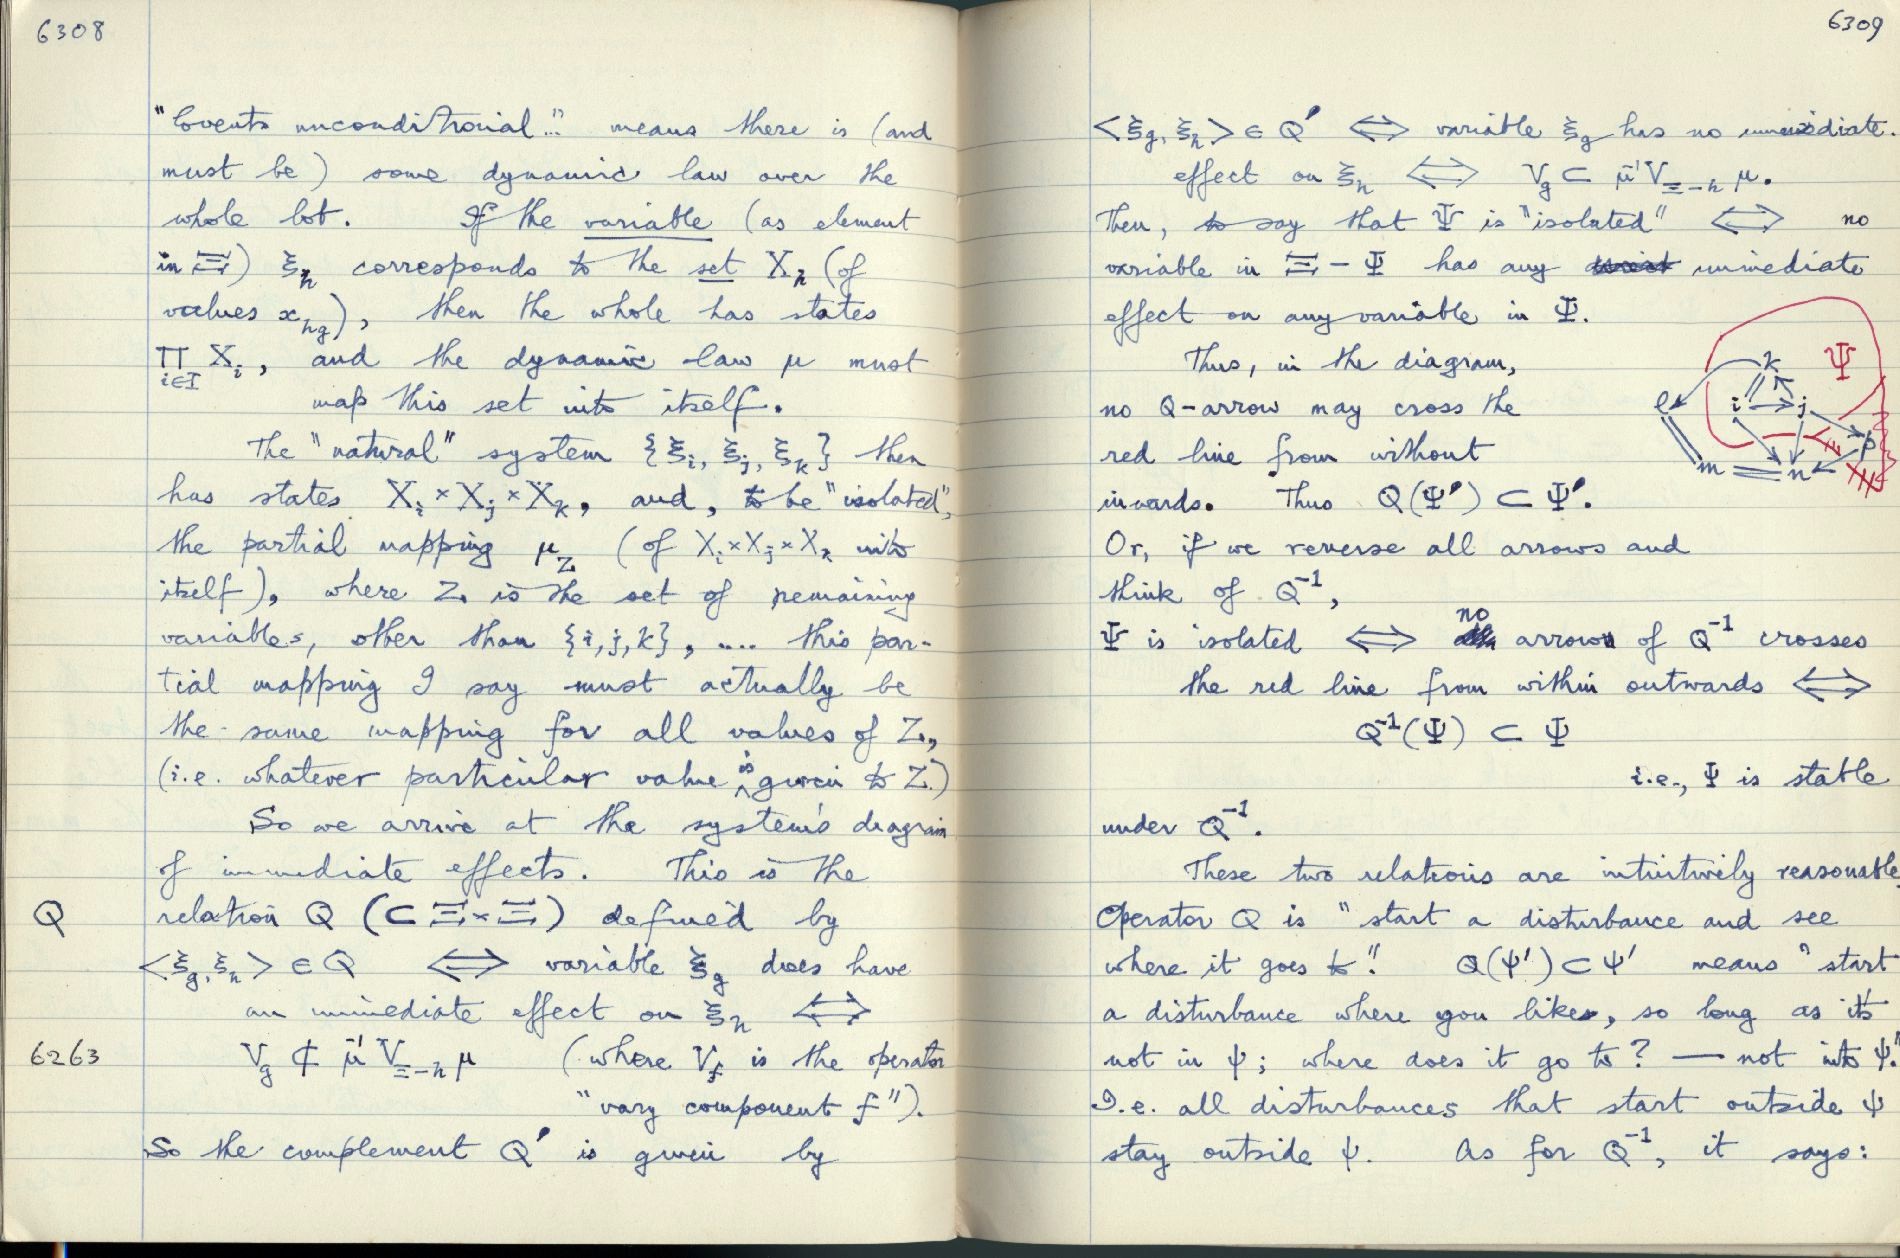 6308
"Covents unconditional..." means there is (and
must be) some dynamic law over the
whole lot. If the variable (as element
in Ξ) ξₕ corresponds to the set Xₕ (of
values xₕg), then the whole has states
∏ Xᵢ, and the dynamic law μ must
i∈I
map this set into itself.
The "natural" system {ξᵢ, ξⱼ, ξₖ} then
has states Xᵢ × Xⱼ × Xₖ, and, to be "isolated",
the partial mapping μ_Z (of Xᵢ × Xⱼ × Xₖ into
itself), where Z is the set of remaining
variables, other than {i, j, k}, .... this par-
tial mapping I say must actually be
the same mapping for all values of Z,
(i.e. whatever particular value is given to Z.)
So we arrive at the system's diagram
of immediate effects. This is the
Q relation Q (⊂ Ξ × Ξ) defined by
<ξg, ξₕ> ∈ Q ⟺ variable ξg does have
an immediate effect on ξₕ ⟺
6263 Vg ⊄ μ⁻¹ V_Ξ−h μ (where V_f is the operator
"vary component f").
So the complement Q′ is given by
6309
<ξg, ξₕ> ∈ Q′ ⟺ variable ξg has no immediate
effect on ξₕ ⟺ Vg ⊂ μ⁻¹ V_Ξ−h μ.
Then, to say that Ψ is "isolated" ⟺ no
variable in Ξ − Ψ has any immediate
effect on any variable in Ψ.
Thus, in the diagram,
no Q-arrow may cross the
red line from without
inwards. Thus Q(Ψ′) ⊂ Ψ′.
k Ψ
l i j
p
m n
Or, if we reverse all arrows and
think of Q⁻¹,
Ψ is isolated ⟺ no arrow of Q⁻¹ crosses
the red line from within outwards ⟺
Q⁻¹(Ψ) ⊂ Ψ
i.e., Ψ is stable
under Q⁻¹.
These two relations are intuitively reasonable.
Operator Q is "start a disturbance and see
where it goes to". Q(Ψ′) ⊂ Ψ′ means "start
a disturbance where you like, so long as it's
not in ψ; where does it go to? — not into ψ."
I.e. all disturbances that start outside ψ
stay outside ψ. As for Q⁻¹, it says: